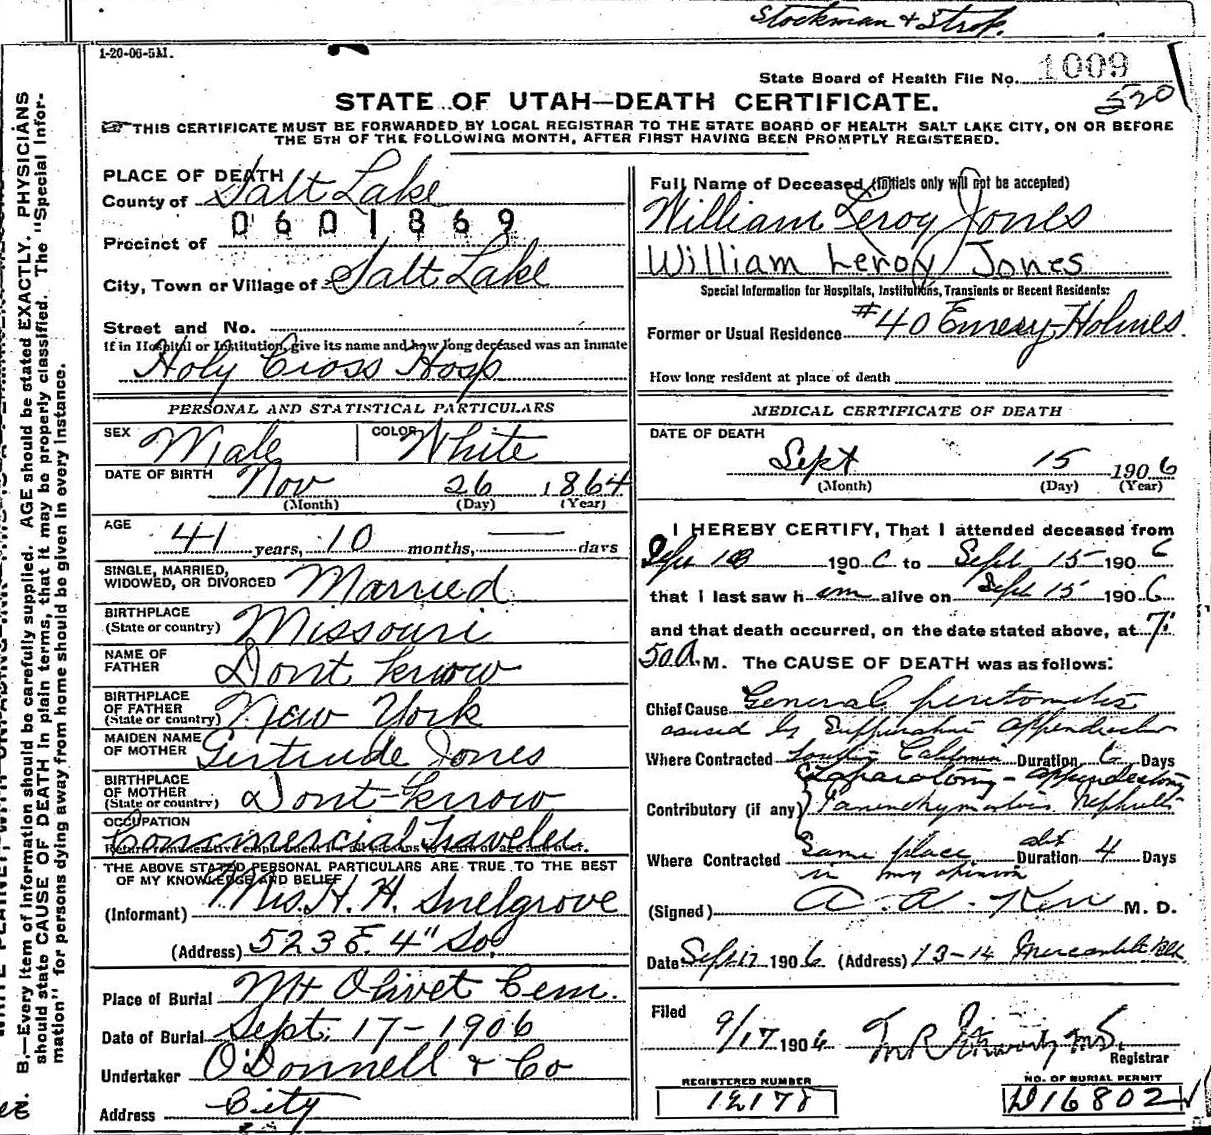 Stockman &
1-20-06-5M.
State Board of Health File No. 1009
520
STATE OF UTAH—DEATH CERTIFICATE.
THIS CERTIFICATE MUST BE FORWARDED BY LOCAL REGISTRAR TO THE STATE BOARD OF HEALTH SALT LAKE CITY, ON OR BEFORE
THE 5TH OF THE FOLLOWING MONTH, AFTER FIRST HAVING BEEN PROMPTLY REGISTERED.
B.—Every item of information should be carefully supplied. AGE should be stated EXACTLY. PHYSICIANS
should state CAUSE OF DEATH in plain terms, that it may be properly classified. The "Special Infor-
mation" for persons dying away from home should be given in every instance.
PLACE OF DEATH
County of Salt Lake
0601869
Precinct of
City, Town or Village of Salt Lake
Street and No.
If in Hospital or Institution, give its name and how long deceased was an inmate
Holy Cross Hosp
PERSONAL AND STATISTICAL PARTICULARS
SEX Male COLOR White
DATE OF BIRTH Nov 26 1864
(Month) (Day) (Year)
AGE
41 years, 10 months, — days
SINGLE, MARRIED,
WIDOWED, OR DIVORCED Married
BIRTHPLACE
(State or country) Missouri
NAME OF
FATHER Dont know
BIRTHPLACE
OF FATHER
(State or country) New York
MAIDEN NAME
OF MOTHER Gertrude Jones
BIRTHPLACE
OF MOTHER
(State or country) Dont know
OCCUPATION
Commercial Traveler.
THE ABOVE STATED PERSONAL PARTICULARS ARE TRUE TO THE BEST
OF MY KNOWLEDGE AND BELIEF
(Informant) Mrs. H. H. Snelgrove
(Address) 523 E. 4" So.
Place of Burial Mt Olivet Cem.
Date of Burial Sept. 17-1906
Undertaker O'Donnell & Co
Address City
Full Name of Deceased (Initials only will not be accepted)
William Leroy Jones
William Leroy Jones
Special Information for Hospitals, Institutions, Transients or Recent Residents:
Former or Usual Residence #40 Emery-Holmes
How long resident at place of death
MEDICAL CERTIFICATE OF DEATH
DATE OF DEATH
Sept 15 1906
(Month) (Day) (Year)
I HEREBY CERTIFY, That I attended deceased from
Sept 190 6 to Sept 15 190 6
that I last saw h im alive on Sept 15 190 6
and that death occurred, on the date stated above, at 7:
50 A. M. The CAUSE OF DEATH was as follows:
Chief Cause General peritonitis
caused by Suppurative appendicitis
Where Contracted Duration 6 Days
Laparotomy - appendectomy
Contributory (if any) Parenchymatous Nephritis
Where Contracted Same place abt Duration 4 Days
in my opinion
(Signed) A. A. Kerr M. D.
Date Sept 17 190 6 (Address) 13-14 Mercantile Blk
Filed
9/17 1906
Registrar
REGISTERED NUMBER
12178
NO. OF BURIAL PERMIT
D16802